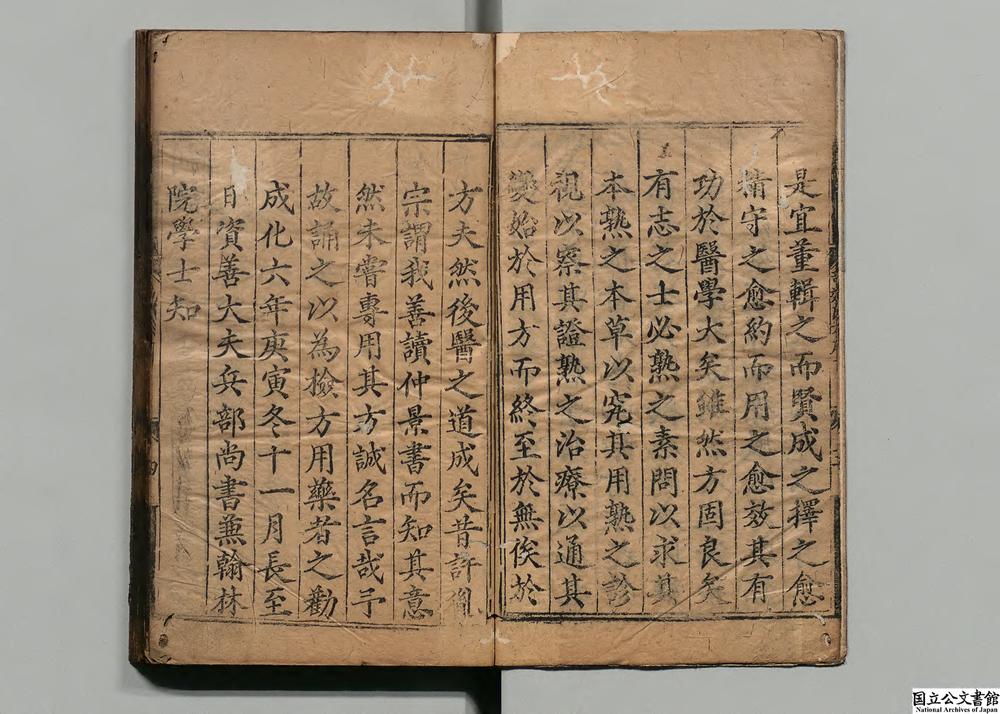 是宜董輯之而賢成之擇之愈
精守之愈約而用之愈效其有
功於醫學大矣雖然方固良矣
有志之士必熟之素問以求其
本熟之本草以究其用熟之診
視以察其證熟之治療以通其
變始於用方而終至於無俟於
方夫然後醫之道成矣昔許胤
宗謂我善讀仲景書而知其意
然未嘗專用其方誠名言哉予
故誦之以為檢方用藥者之勸
成化六年庚寅冬十一月長至
日資善大夫兵部尚書兼翰林
院學士知
国立公文書館
National Archives of Japan